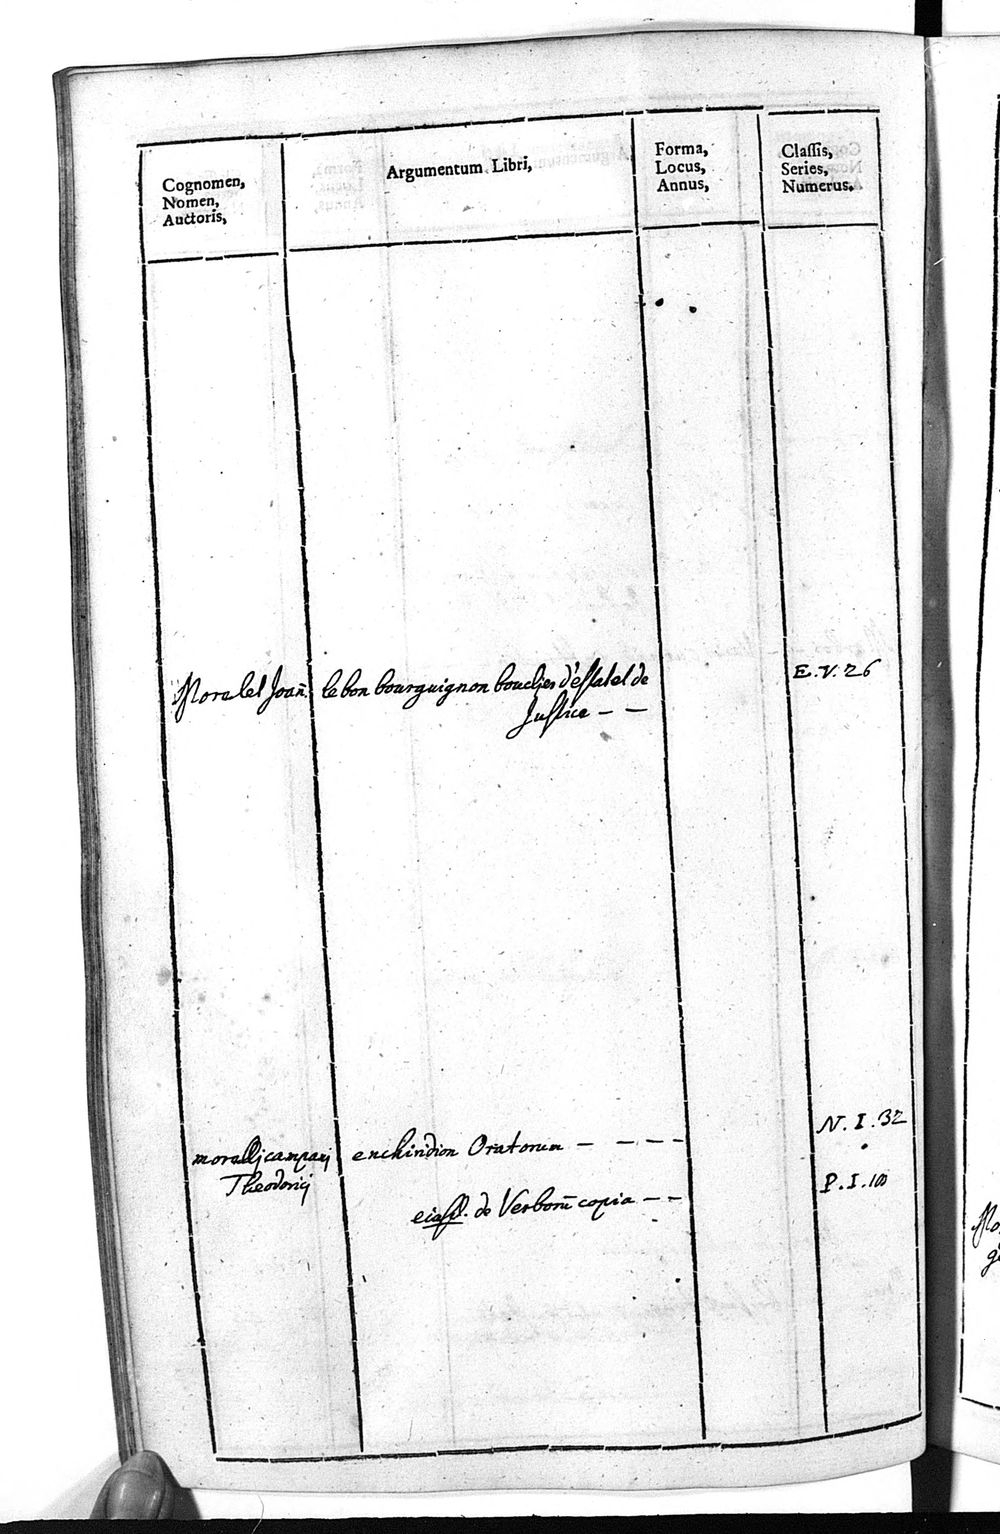 Cognomen,
Nomen,
Auctoris,
Argumentum Libri,
Forma,
Locus,
Annus,
Classis,
Series,
Numerus.
Morelet Joañ. le bon bourguignon bouclier d'estat et de
Justice – –
E.V. 26
enchiridion Oratorum – – – –
N. I. 32
Theodorici
de Verborũ copia – –
P. I. 10